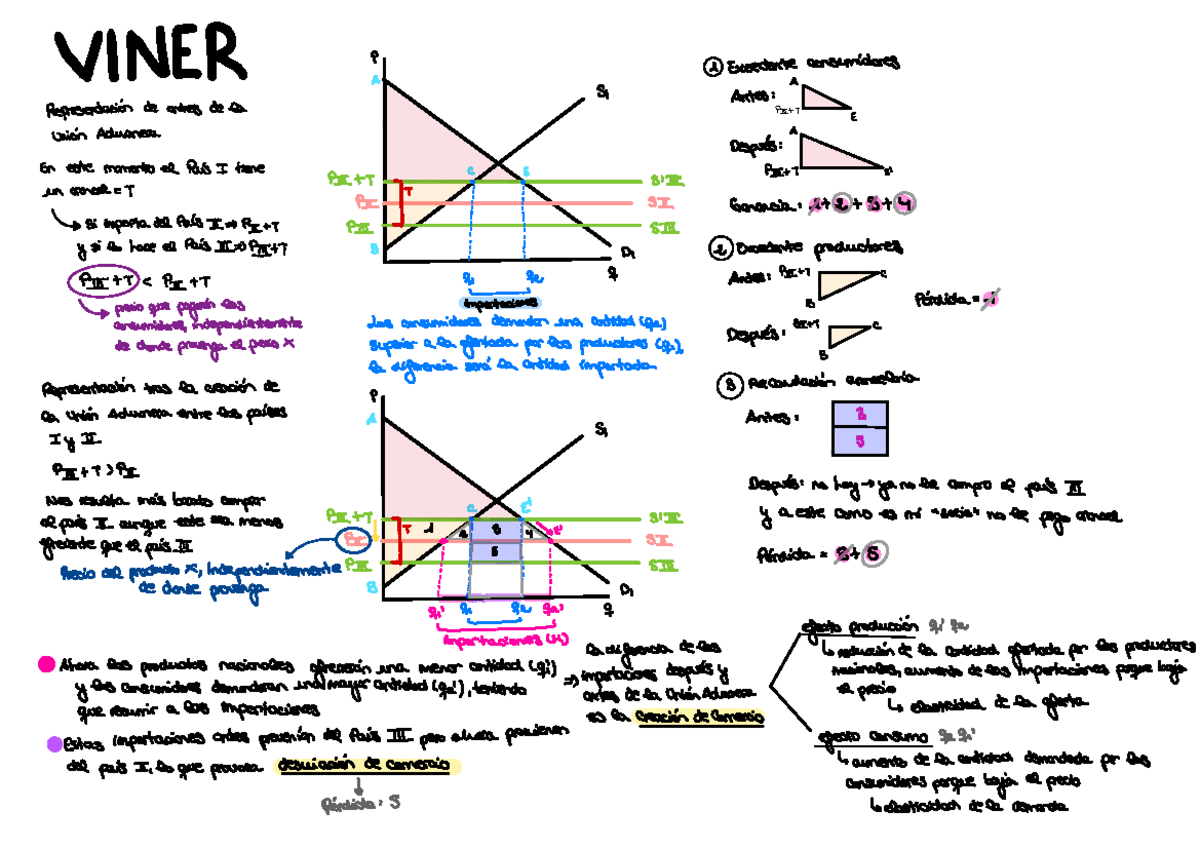 VINER
Representación de antes de la
Unión Aduanera.
En este momento el País I tiene
un arancel = T
Si importa del País II => PII+T
y si lo hace el País III => PIII+T
PIII+T < PII+T
precio que pagarán los
consumidores, independientemente
de donde provenga el X
P
A
S1
PIII+T
C
E
S'III
T
PII
SII
PIII
SIII
B
D1
q1
q2
q
importaciones
Los consumidores demandan una cantidad (q2)
superior a la ofertada por los productores (q1),
la diferencia será la cantidad importada
Representación tras la creación de
la Unión Aduanera entre los países
I y II
PIII+T > PII
Nos resulta más barato comprar
al país II aunque este sea menos
eficiente que el país III
Precio del producto X, independientemente
de donde provenga
P
A
S1
PIII+T
C
E'
S'III
T
1
2
3
4
PII
5
SII
PIII
SIII
B
D1
q1'
q1
q2
q2'
q
importaciones
Ahora los productos nacionales ofrecerán una menor cantidad (q1')
y los consumidores demandaran una mayor cantidad (q2'), teniendo
que recurrir a las importaciones
Estas importaciones antes provenían del País III pero ahora provienen
del país II, lo que provoca desviación de comercio
Pérdida: 5
=> la diferencia de las
importaciones después y
antes de la Unión Aduanera
es la creación de comercio
1 Excedente consumidores
Antes:
A
PIII+T
E
Después:
A
PII+T
Ganancia: 1+2+3+4
2 Excedente productores
Antes: PIII+T
C
B
Pérdida = -1
Después:
C
B
3 Recaudación arancelaria
Antes:
3
5
Después: no hay → ya no le compro al país III
y a este como es mi "socio" no le pago arancel
Pérdida = 3+5
efecto producción q1' q1
reducción de la cantidad ofertada por los productores
nacionales, aumento de las importaciones porque bajo
el precio
elasticidad de la oferta
efecto consumo q2 q2'
aumento de la cantidad demandada por los
consumidores porque bajan el precio
elasticidad de la demanda